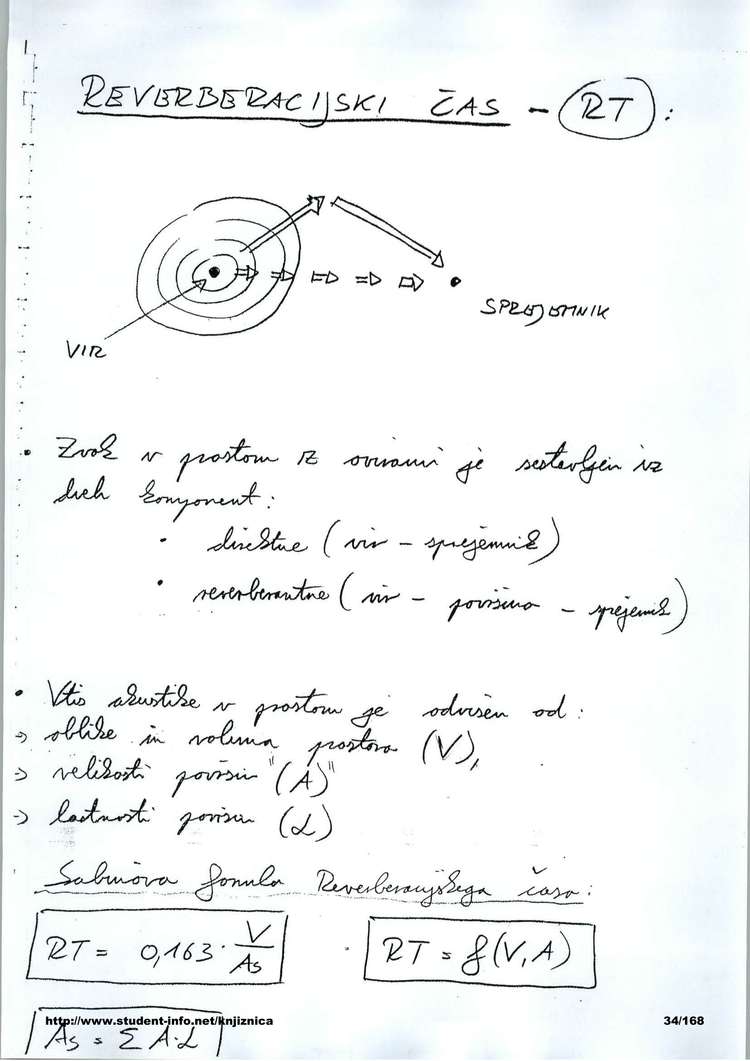 REVERBERACIJSKI ČAS - RT:
SPREJEMNIK
VIR
• Zvok v prostoru z ovirami je sestavljen iz
dveh komponent:
• direktne (vir - sprejemnik)
• reverberantne (vir - površina - sprejemnik)
• Vtis akustike v prostoru je odvisen od:
→ oblike in voluma prostora (V),
→ velikosti površin "(A)"
→ lastnosti površin (α)
Sabinova formula Reverberacijskega časa:
RT = 0,163 · V/As
RT = f(V,A)
As = Σ A·α
http://www.student-info.net/knjiznica
34/168